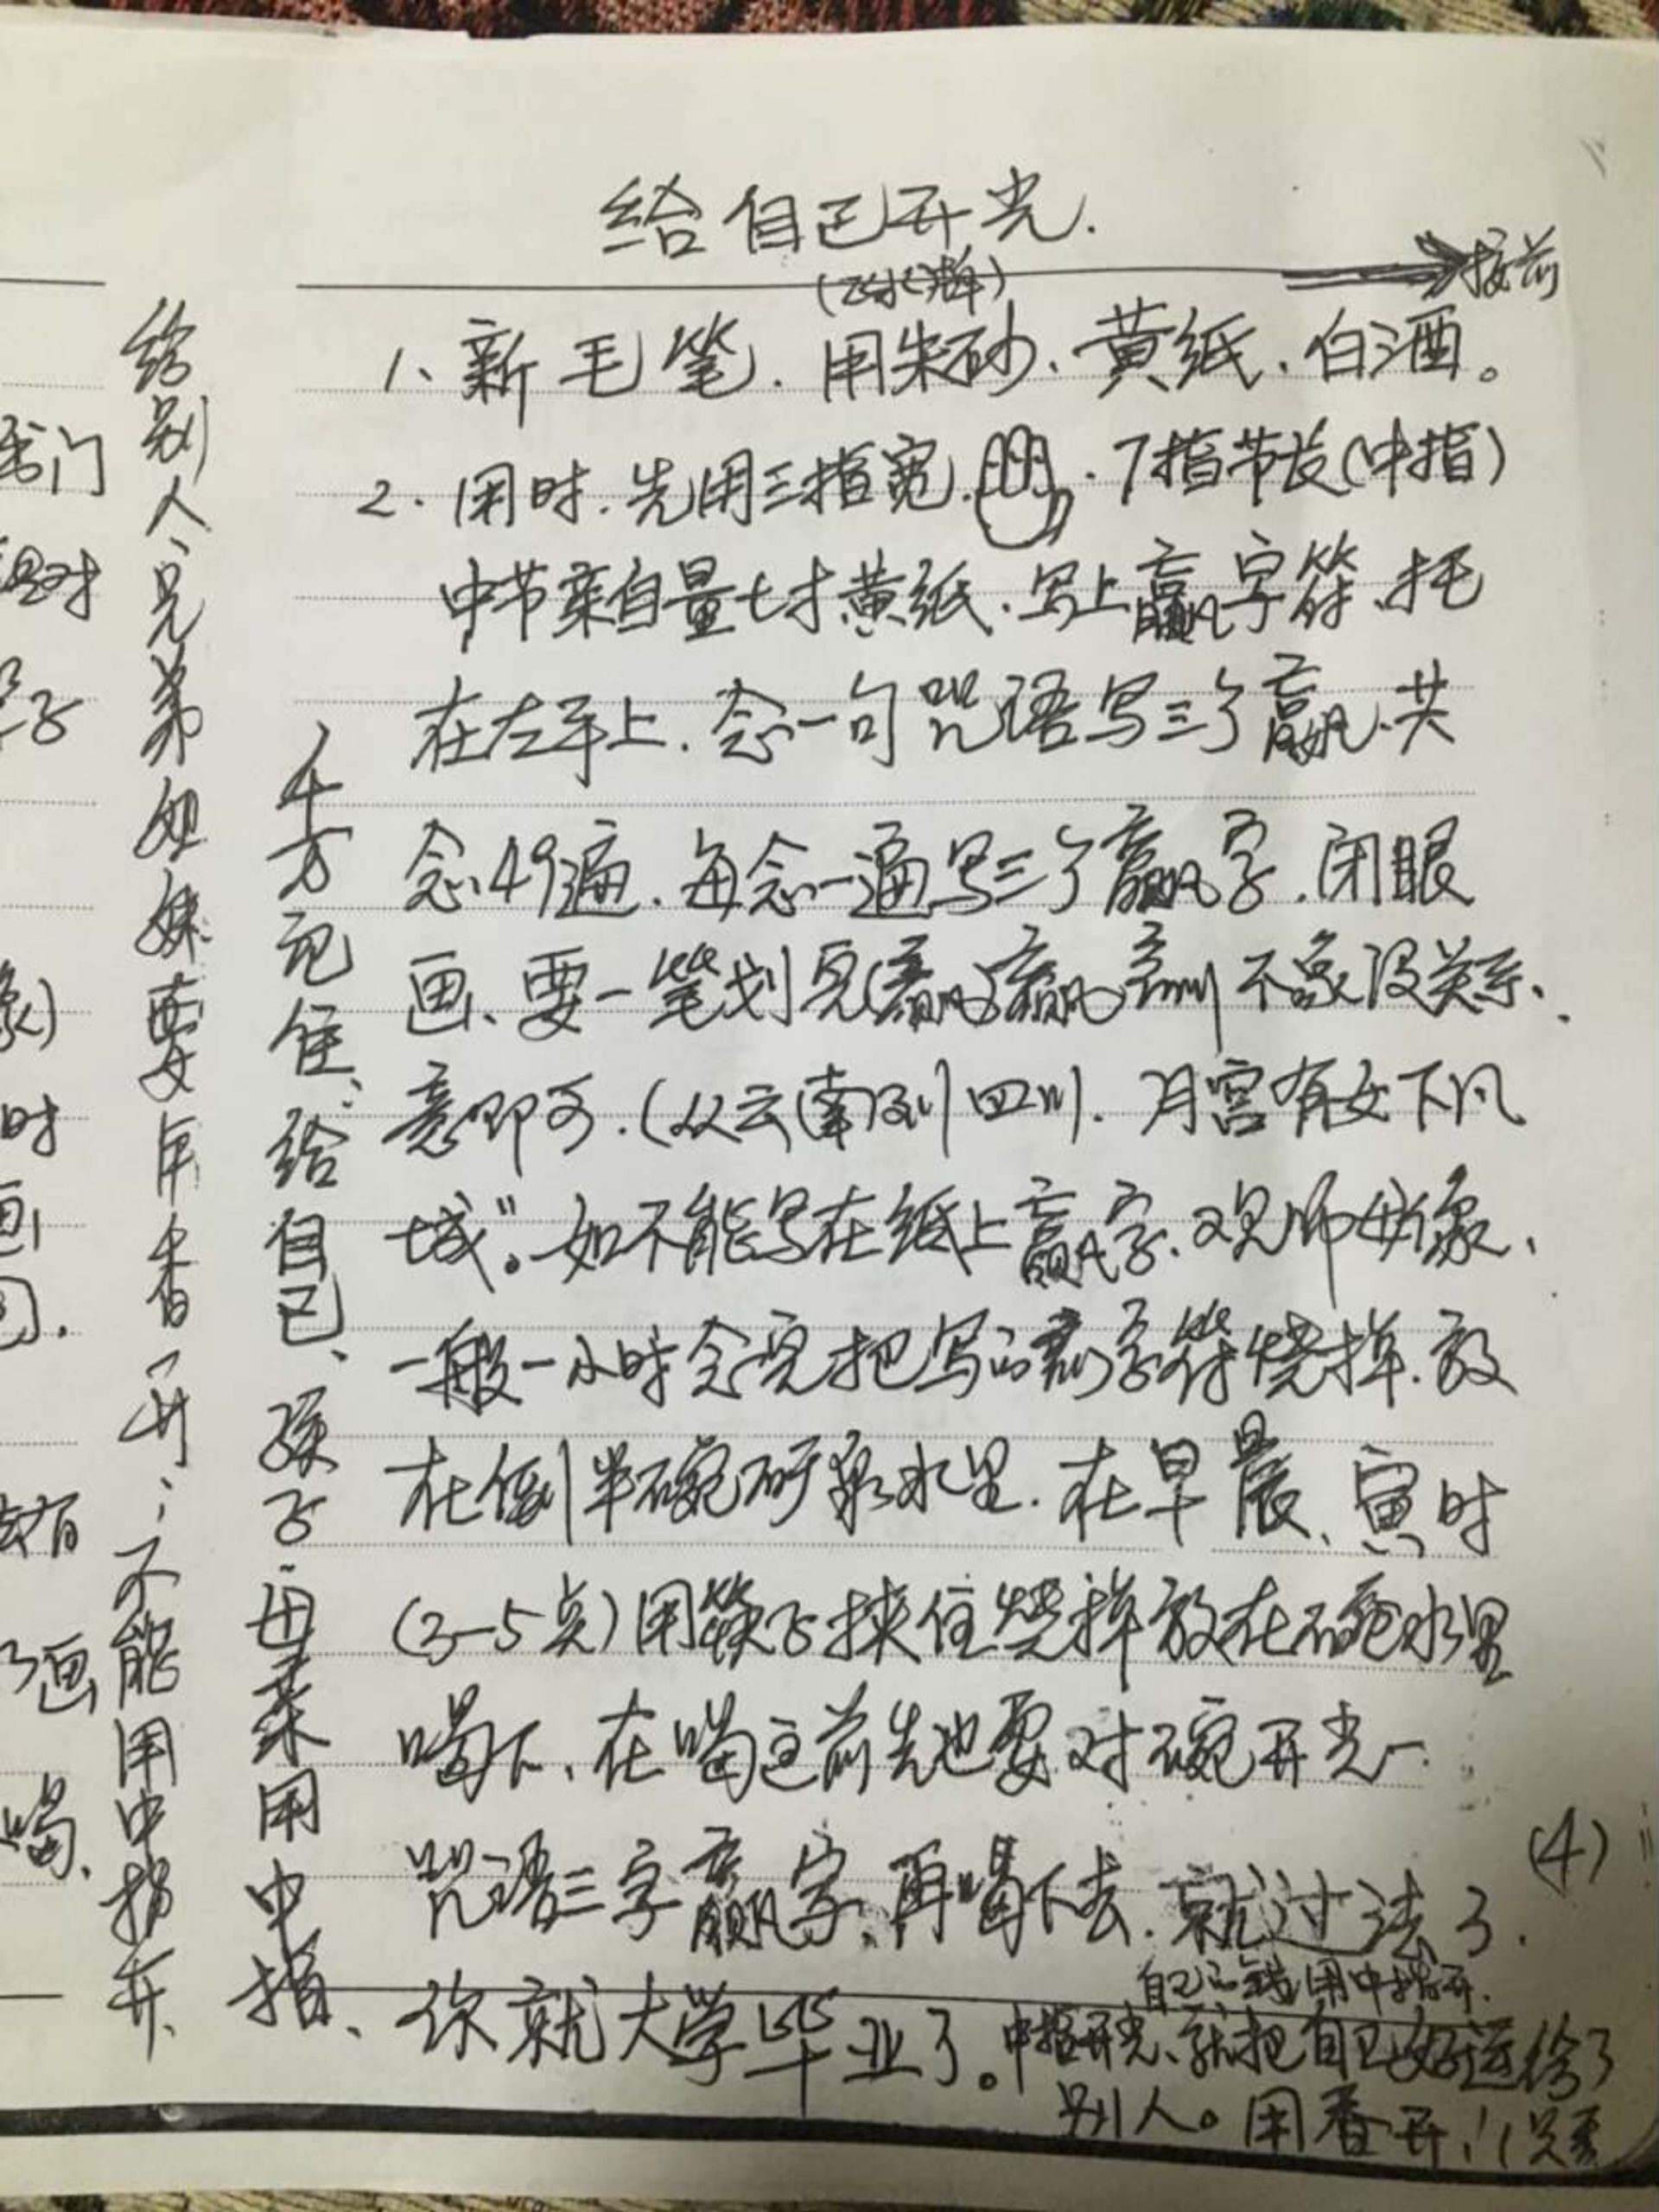 给自己开光.
→接前
1、新毛笔.用朱砂、黄纸、白酒。
2.用时.先用三指宽.7指节长(中指)
中节亲自量七才黄纸.写上赢字符、托
在左手上.念一句咒语写三个赢.共
念49遍.每念一遍写三个赢字.闭眼
画、要一笔划完(赢)赢 不象没关系、
意即可.(从云南到四川.月宫有女下凡
城”。如不能写在纸上赢字.观师母像、
一般一小时念完把写的赢字符烧掉.放
在倒半碗矿泉水里.在早晨、寅时
(3-5点)用筷子挟住烧掉放在碗水里
喝下、在喝之前先也要对碗开光一
咒语三字赢字、再喝下去.就过法了.
(4)
自己的钱用中指开.
你就大学毕业了。中指开光、就把自己好运给了
别人。用香开、
千万记住、给自己、孩子.母亲用中指、
给别人、兄弟姐妹要用香开;不能用中指开、
时
画
喝、